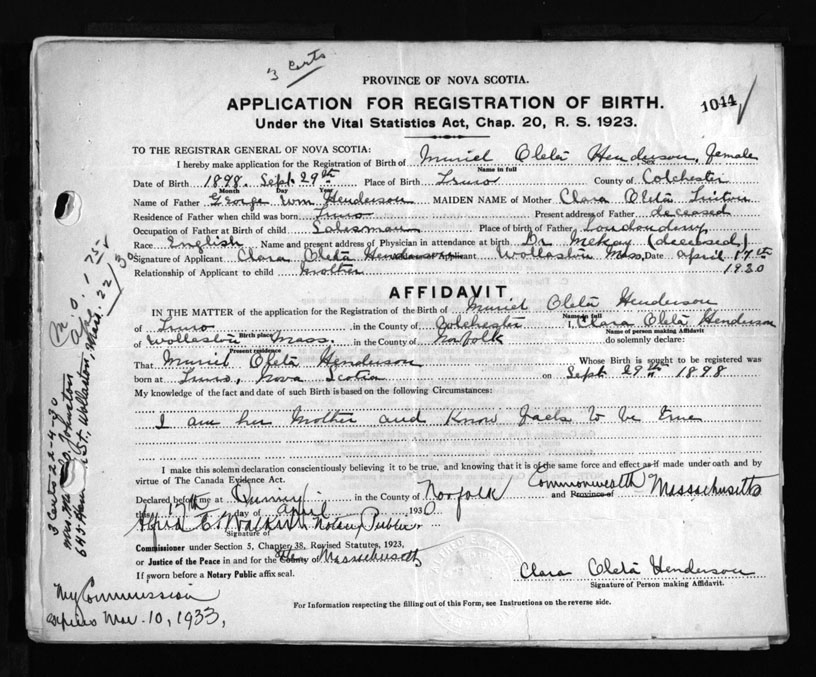 3 Certs
PROVINCE OF NOVA SCOTIA.
APPLICATION FOR REGISTRATION OF BIRTH.
1044
Under the Vital Statistics Act, Chap. 20, R. S. 1923.
TO THE REGISTRAR GENERAL OF NOVA SCOTIA:
I hereby make application for the Registration of Birth of Muriel Oleta Henderson, female
Name in full
Date of Birth 1898. Sept. 29th Place of Birth Truro County of Colchester
Month Day Year
Name of Father George Wm Henderson MAIDEN NAME of Mother Clara Oleta
Residence of Father when child was born Truro Present address of Father deceased
Occupation of Father at Birth of child Salesman Place of birth of Father Londonderry
Race English Name and present address of Physician in attendance at birth Dr McKay (deceased)
Signature of Applicant Clara Oleta Henderson Applicant Wollaston Mass. Date April 17th
1930
Relationship of Applicant to child Mother
AFFIDAVIT
IN THE MATTER of the application for the Registration of the Birth of Muriel Oleta Henderson
Name in full
of Truro in the County of Colchester I, Clara Oleta Henderson
Birth place Name of person making Affidavit
of Wollaston Mass. in the County of Norfolk do solemnly declare:
Present residence
That Muriel Oleta Henderson Whose Birth is sought to be registered was
born at Truro, Nova Scotia on Sept 29th 1898
My knowledge of the fact and date of such Birth is based on the following Circumstances:
I am her Mother and Know facts to be true
I make this solemn declaration conscientiously believing it to be true, and knowing that it is of the same force and effect as if made under oath and by
virtue of The Canada Evidence Act.
Declared before me at Quincy in the County of Norfolk and Province of Commonwealth Massachusetts
this 17th day of April 1930
Notary Public
Signature of
Commissioner under Section 5, Chapter 38, Revised Statutes, 1923,
or Justice of the Peace in and for the County of Massachusetts
If sworn before a Notary Public affix seal.
Clara Oleta Henderson
Signature of Person making Affidavit.
My Commission
expires Mar. 10, 1933,
For Information respecting the filling out of this Form, see Instructions on the reverse side.
3 Certs 22-4-30
Mrs. Johnston
St. Wollaston, Mass.